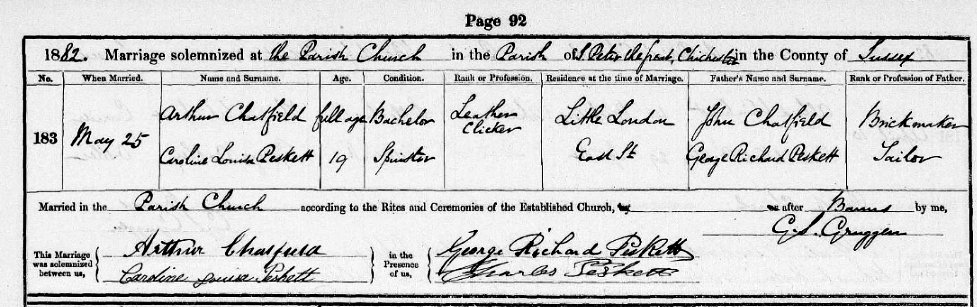 Page 92
1882. Marriage solemnized at the Parish Church in the Parish of S. Peter the Great, Chichester in the County of Sussex
No. When Married. Name and Surname. Age. Condition. Rank or Profession. Residence at the time of Marriage. Father's Name and Surname. Rank or Profession of Father.
183 May 25 Arthur Chatfield full age Bachelor Leather Clicker Little London John Chatfield Brickmaker
Caroline Louisa Peskett 19 Spinster East St George Richard Peskett Tailor
Married in the Parish Church according to the Rites and Ceremonies of the Established Church, by or after Banns by me,
G. S. Gruggen
This Marriage was solemnized between us, Arthur Chatfield in the Presence of us, George Richard Peskett
Caroline Louisa Peskett Charles Peskett